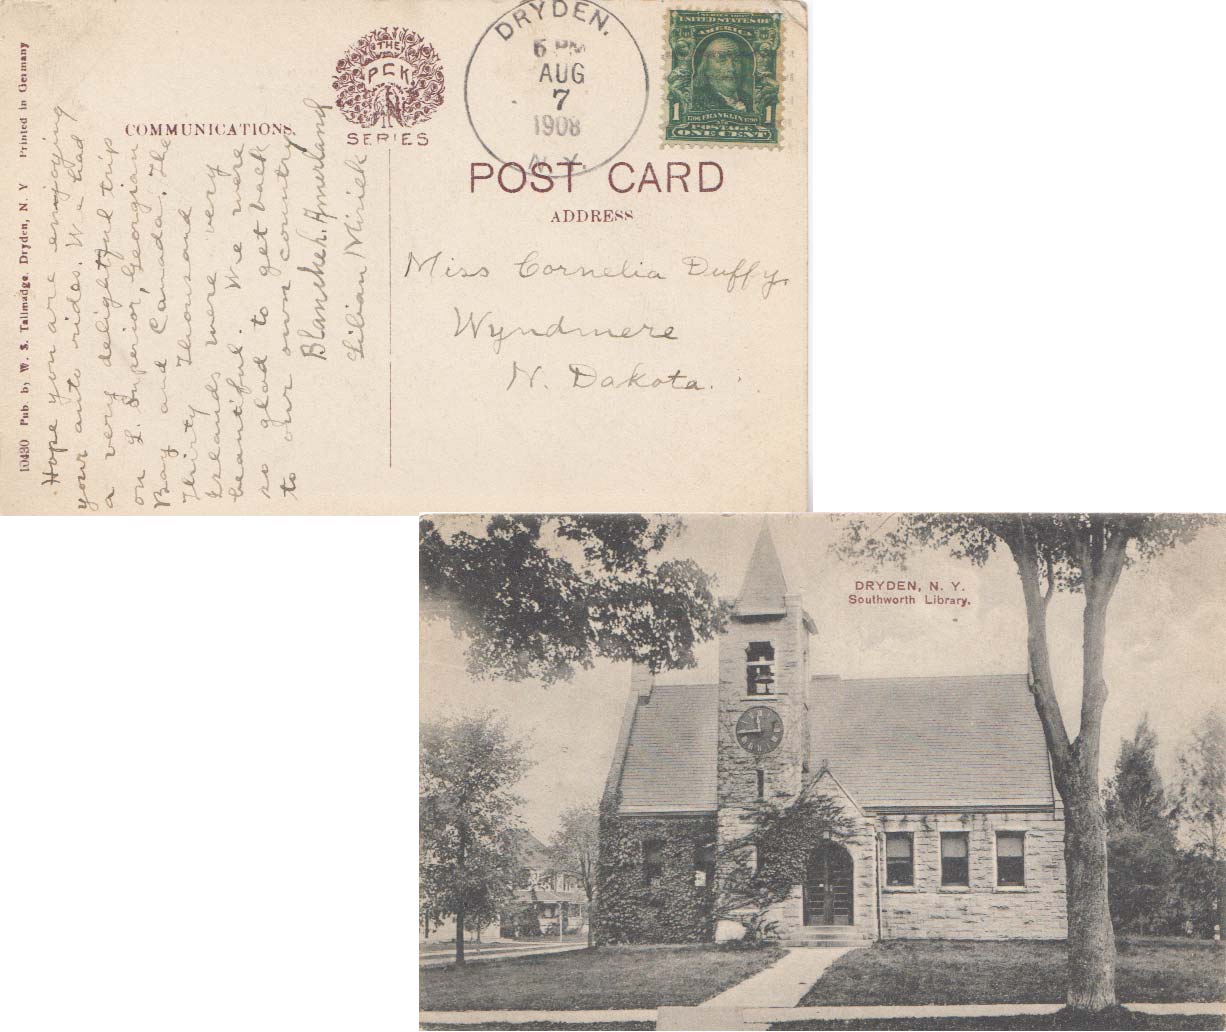 10430 Pub. by W. S. Tallmadge, Dryden, N. Y Printed in Germany
COMMUNICATIONS.
THE
PCK
SERIES
DRYDEN.
6 PM
AUG
7
1908
N.Y.
SERIES 1902
UNITED STATES OF
AMERICA
1 1706 FRANKLIN 1790 1
POSTAGE
ONE CENT
POST CARD
ADDRESS
Hope you are enjoying
your auto rides. We had
a very delightful trip
on L. Superior, Georgian
Bay and Canada. The
Thirty Thousand
Islands were very
beautiful. We were
so glad to get back
to our own country
Blanche h.
Lilian Mirick
Miss Cornelia Duffy,
Wyndmere
N. Dakota.
DRYDEN, N. Y.
Southworth Library.